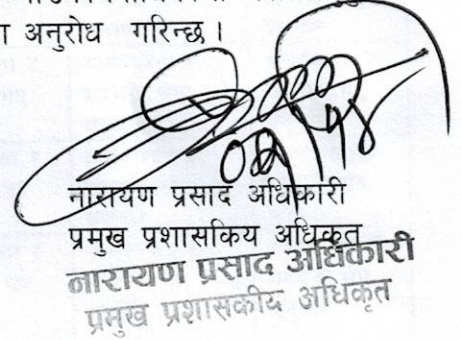 ा अनुरोध गरिन्छ ।
नारायण प्रसाद अधिकारी
प्रमुख प्रशासकिय अधिकृत
नारायण प्रसाद अधिकारी
प्रमुख प्रशासकीय अधिकृत